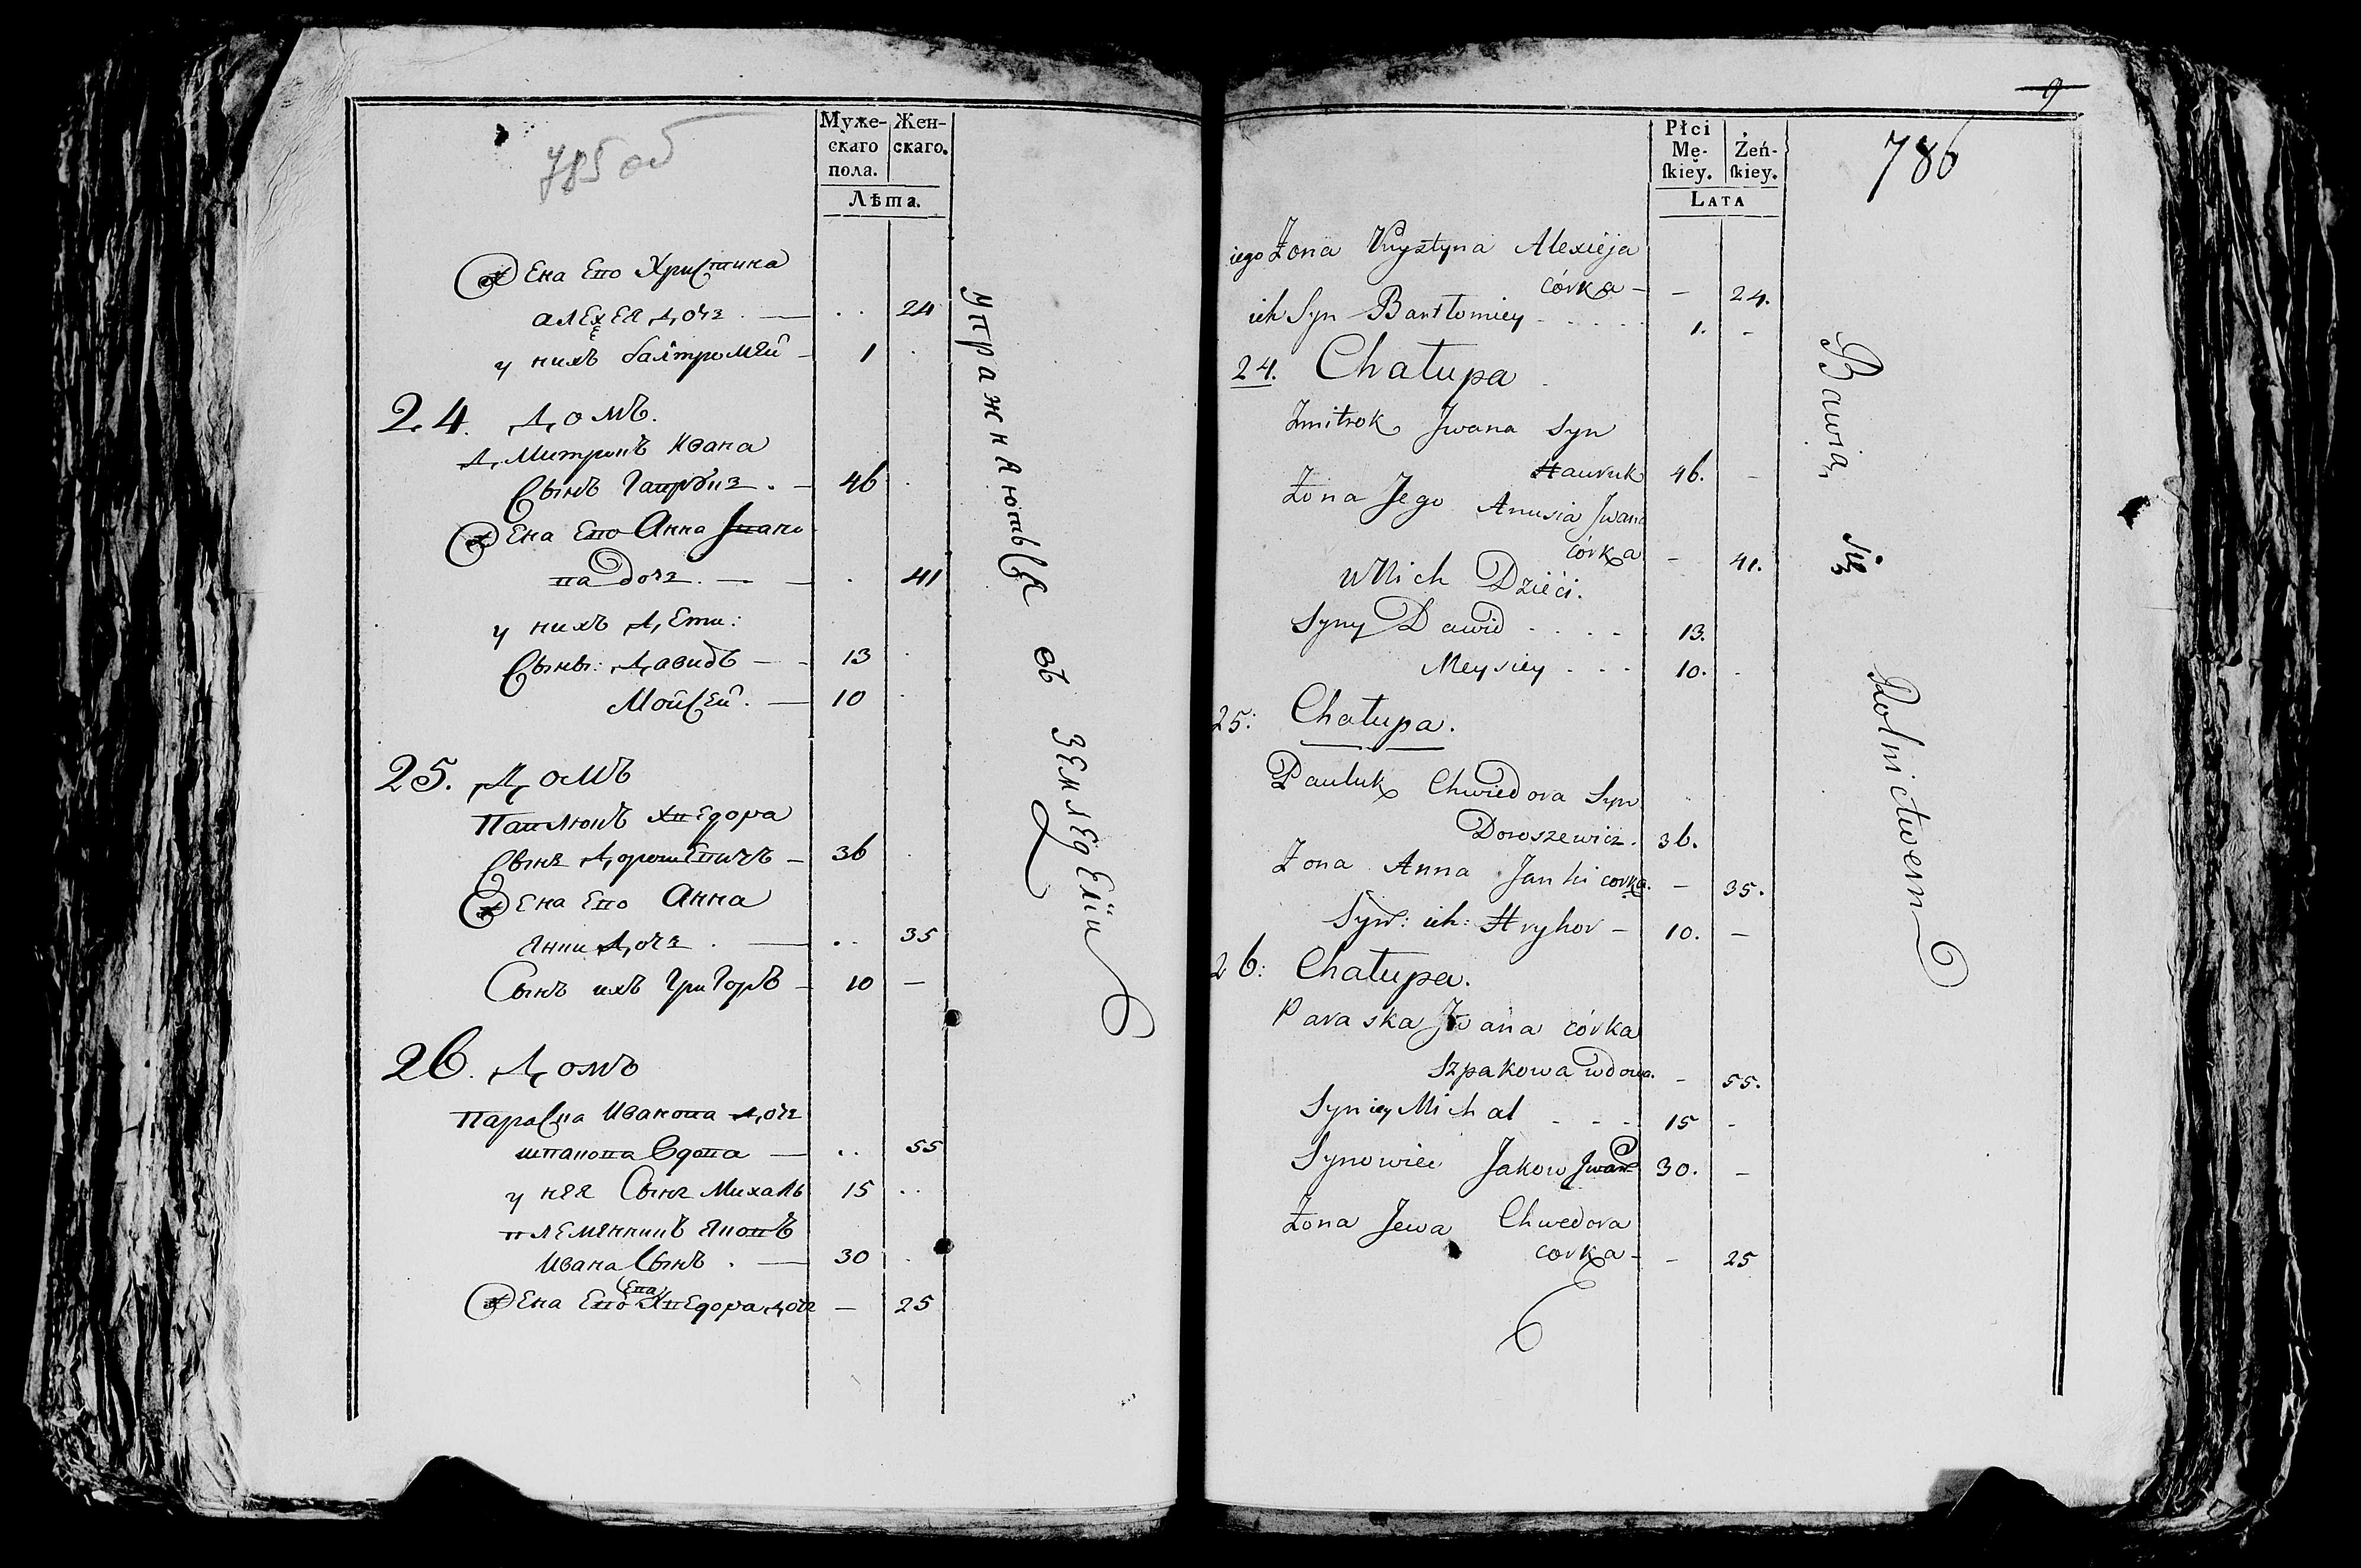 785 об
Муже-
скаго
пола.
Жен-
скаго.
Лѣта.
Жена Ево Христина
алеѯея дочь . — . . 24
у нихъ балтромей — 1 .
24. Домъ.
Дмитрокъ Ивана
Сынъ Гаврукъ . — 46 .
Жена Ево Анна Ивано
ва дочь . — — . 41
у нихъ дети:
Сыны: Давидъ — - 13 .
Мойсей . — 10 .
25. Домъ
Павлюкъ Хведора
Сынъ Дорошевичъ — 36 .
Жена Ево Анна
Янки дочь . — . . 35
Сынъ ихъ Григоръ — 10 —
26. Домъ
Параска Иванова дочь
шпакова вдова — . . 55
у нея Сынъ Михалъ 15 . .
племянникъ Яковъ
Ивана Сынъ . — 30 .
Ева
Жена Ево Хведора дочь — 25
упражняються въ земледелiи
9
786
Płci
Mę-
skiey.
Żeń-
skiey.
LATA
iego Żona Krystyna Alexieja
córka — — 24.
ich Syn Bartłomiey . . . . . 1. -
24. Chałupa
Zmitrok Jwana Syn
Hawruk 46. -
Żona Jego Anusia Jwana
córka — 41.
u Nich Dzieci.
Syny Dawid . . . . 13.
Meysiey . . . 10. .
25: Chałupa.
Pauluk Chwiedora Syn
Doroszewicz. 36.
Żona Anna Janki corka. — 35.
Syn: ich: Hryhor — 10. —
26: Chałupa.
Paraska Jwana córka
Szpakowa wdowa. - 55.
Syn iey Michał . . . 15 -
Synowiec Jakow Jwan 30. —
Żona Jewa Chwedora
corka — - 25
Bawią się Rolnictwem